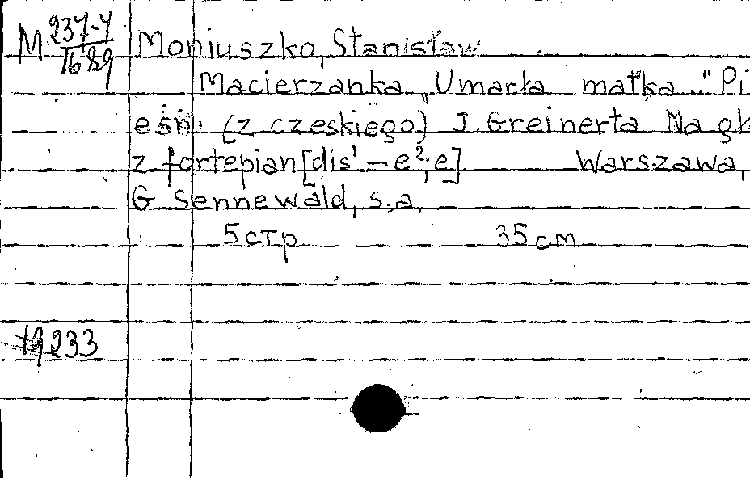 M 237-4/1689
Moniuszko, Stanisław
Macierzanka „Umarła matka..." Pi
eśń. (z czeskiego) J. Greinerta Na gł
z fortepian [dis¹ – e²; e] Warszawa,
G Sennewald, s.a.
5 стр 35 cm
19233